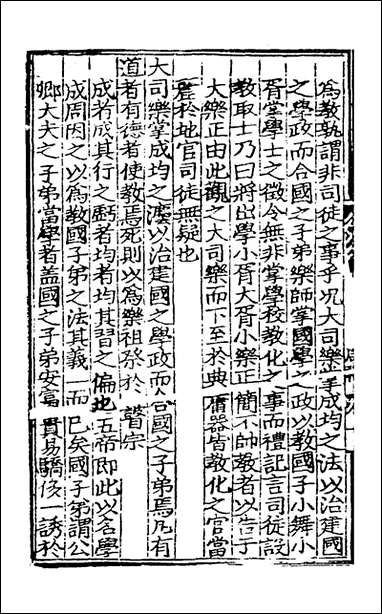 為教孰謂非司徒之事乎况大司樂掌成均之法以治建國
之學政而合國之子弟樂師掌國學之政以教國子小舞小
胥掌學士之徵令無非掌學校教化之事而禮記言司徒設
教取士乃曰將出學小胥大胥小樂正簡不帥教者以告于
大樂正由此觀之大司樂而下至於典庸器皆教化之官當
麗於地官司徒無疑也
大司樂掌成均之灋以治建國之學政而合國之子弟焉凡有
道者有德者使教焉死則以為樂祖祭於瞽宗
成者成其行之虧者均者均其習之偏也五帝即此以名學
成周因之以為教國子弟之法其義一而已矣國子弟謂公
卿大夫之子弟當學者盖國之子弟安富貴易驕侈一誘於